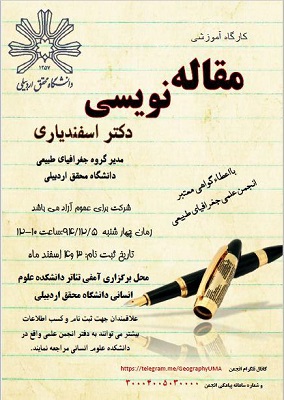 کارگاه آموزشی
مقاله نویسی
دانشگاه محقق اردبیلی
۱۳۵۷
دکتر اسفندیاری
مدیر گروه جغرافیای طبیعی
دانشگاه محقق اردبیلی
با اعطاء گواهی معتبر
انجمن علمی جغرافیای طبیعی
شرکت برای عموم آزاد می باشد
زمان: چهارشنبه ۹۴/۱۲/۵ساعت: ۱۰-۱۲
تاریخ ثبت نام: ۳ و۴ اسفند ماه
محل برگزاری آمفی تئاتر دانشکده علوم
انسانی دانشگاه محقق اردبیلی
علاقمندان جهت ثبت نام و کسب اطلاعات
بیشتر می توانند به دفتر انجمن علمی واقع در
دانشکده علوم انسانی مراجعه نمایند.
کانال تلگرام انجمن https://telegram.me/GeographyUMA
و شماره سامانه پیامکی انجمن ۳۰۰۰۴۰۰۵۰۳۰۰۰۰